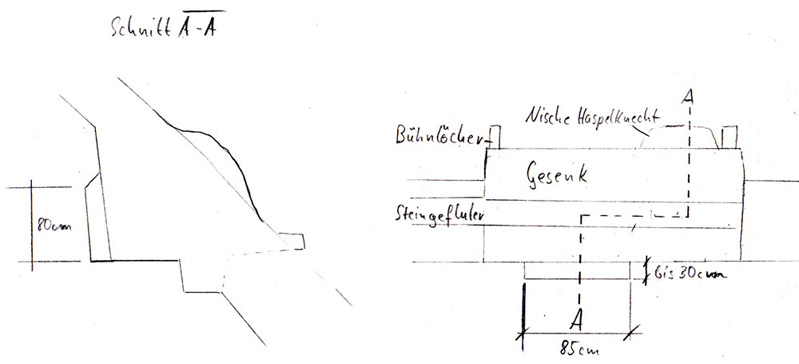 Schnitt A-A
80cm
A
Nische Haspelknecht
Bühnlöcher
Gesenk
Steingefluter
bis 30cm
A
85cm